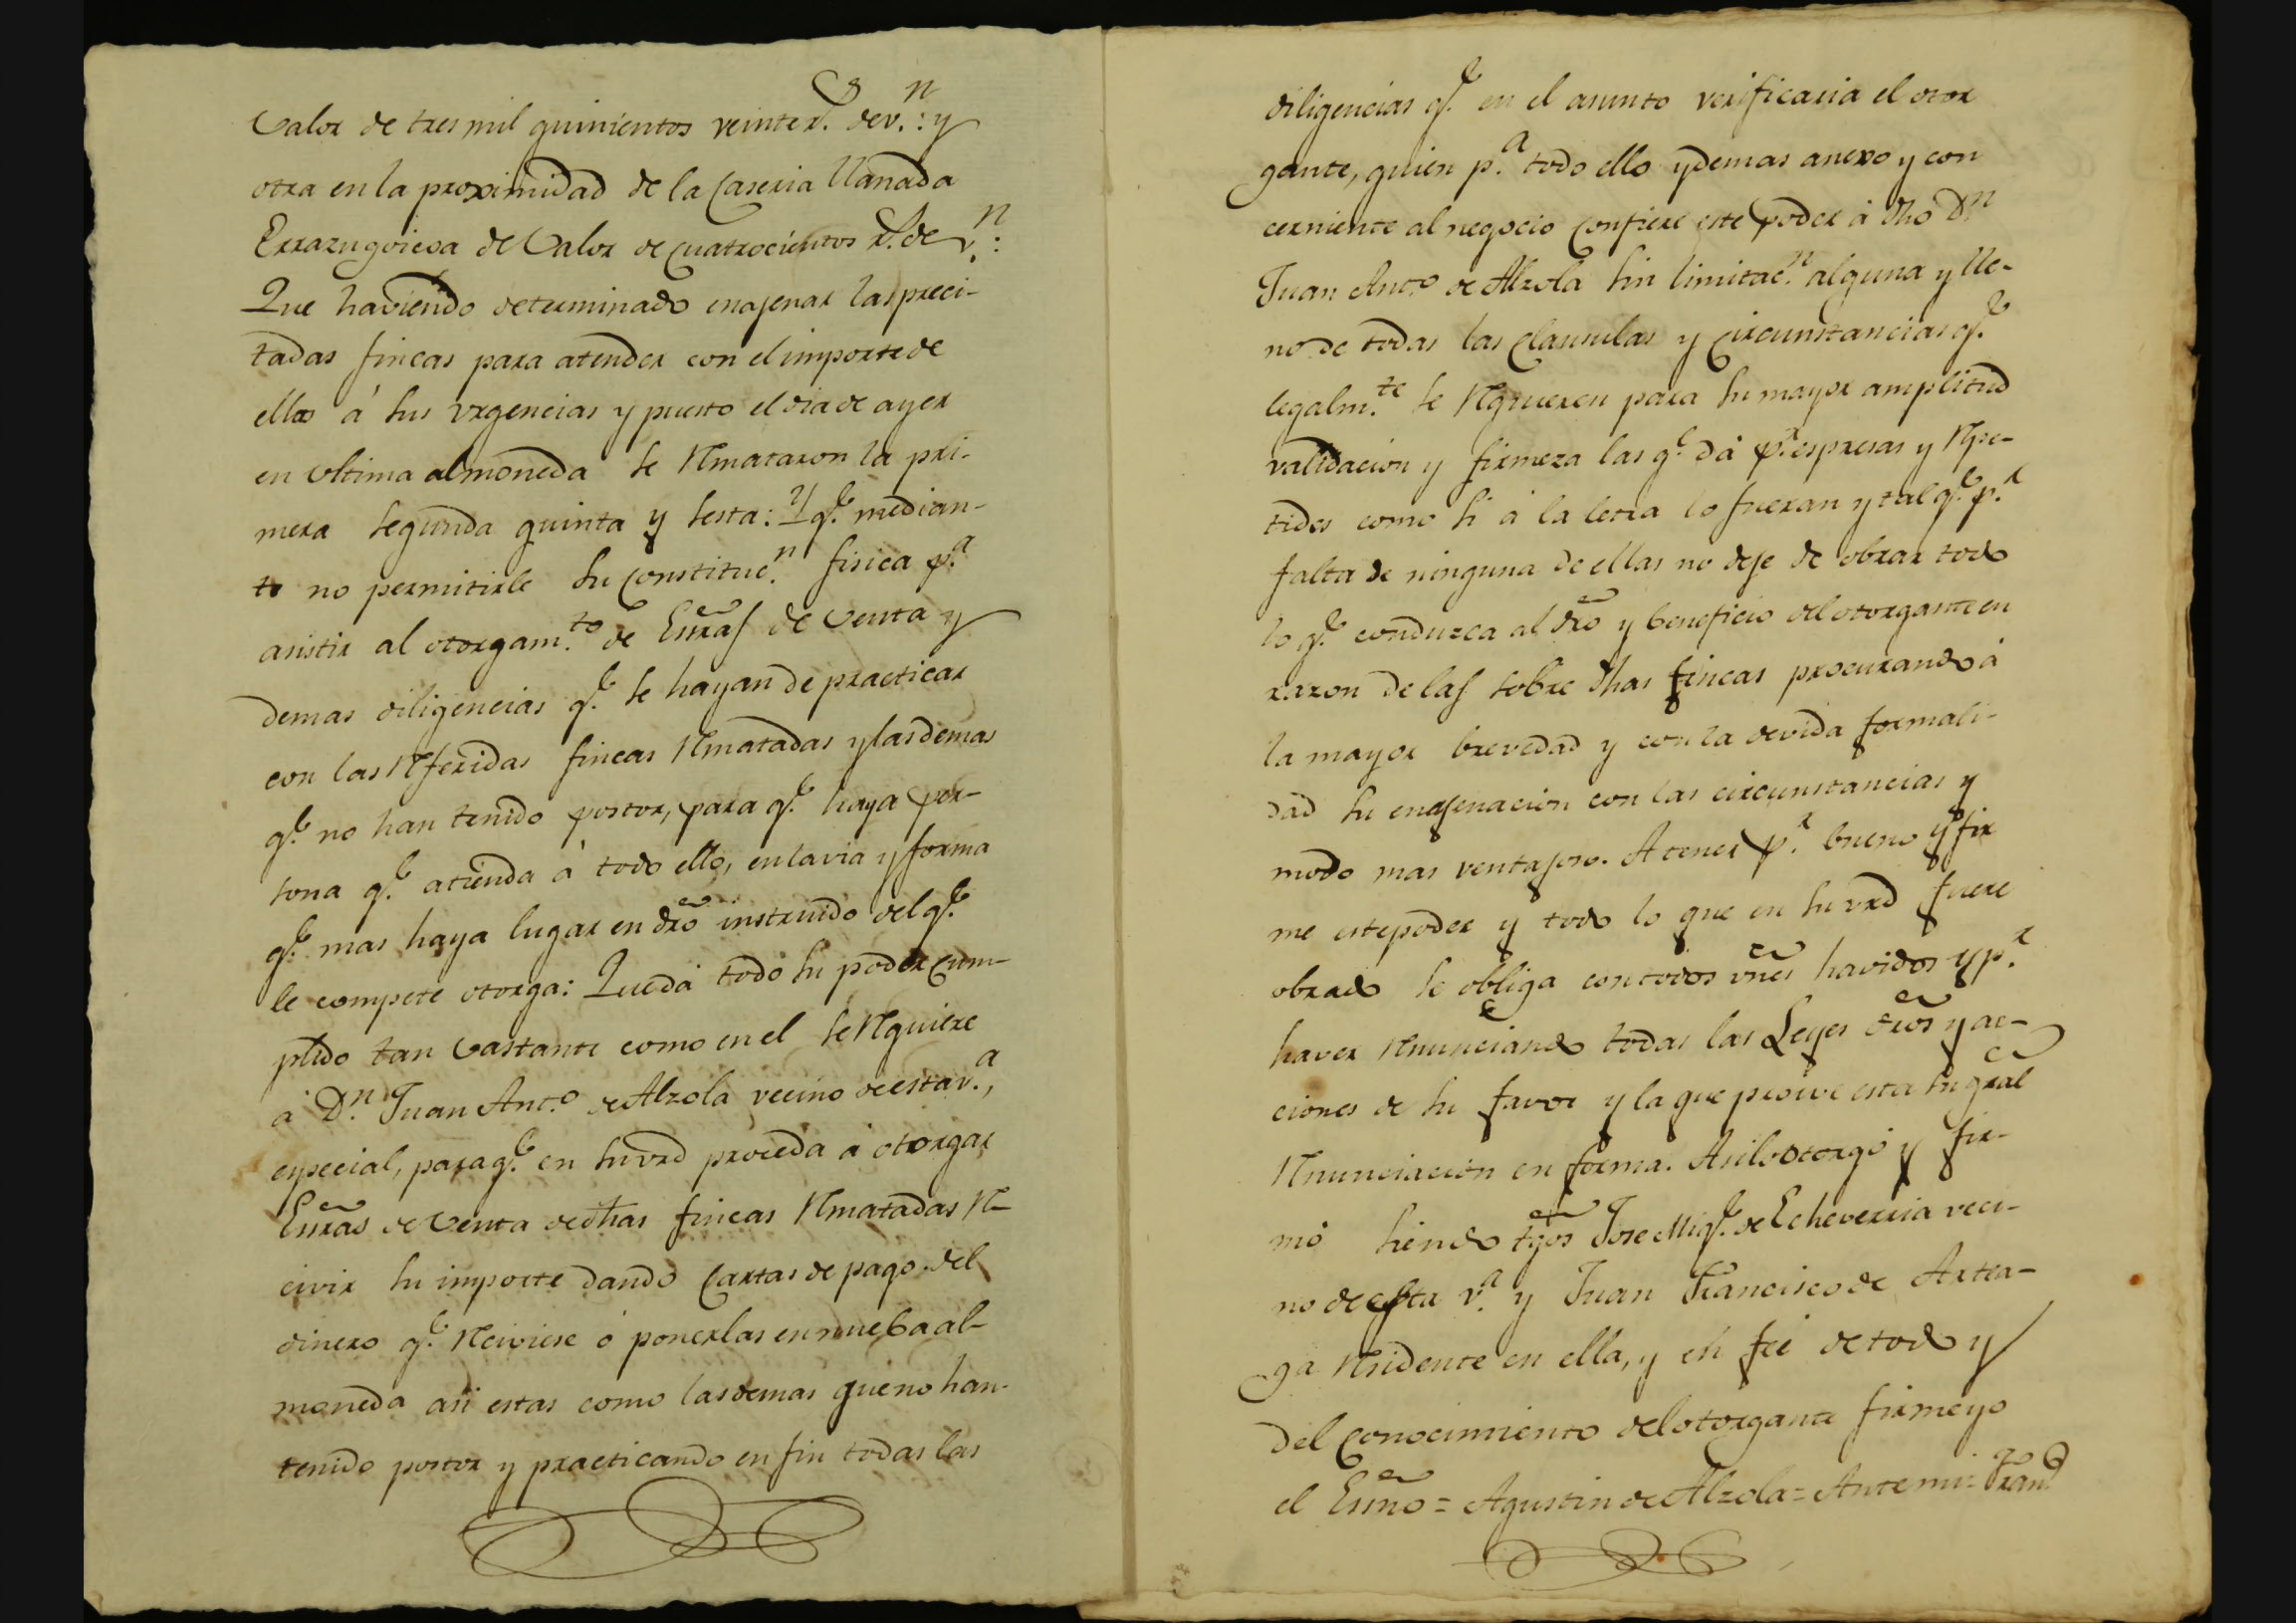 Valor de tres mil quinientos veinte r.s de v.n: y
otra en la proximidad de la Caseria llanada
Errazugoiena de Valor de Cuatrocientos r.s de v.n:
Que haviendo determinado enajenar las preci-
tadas fincas para atender con el importe de
ellas á sus vrgencias y puesto el dia de ayer
en Vltima almoneda se Rmataron la pri-
mera segunda quinta y sesta: Y q.e median-
te no permitirle su Constituc.n fisica p.a
asistir al otorgam.to de Essras de Venta y
demas diligencias q.e se hayan de practicar
con las Rferidas fincas Rmatadas y las demas
q.e no han tenido postor, para q.e haya per-
sona q.e atienda á todo ello, en la via y forma
q.e mas haya lugar en dro instruido del q.e
le compete otorga: Que dá todo su poder Cum-
plido tan Vastante como en el se Rquiere
á D.n Juan Ant.o de Alzola vecino de esta v.a,
especial, para q.e en su vrd proceda á otorgar
Essras de Venta de dhas fincas Rmatadas R-
civir su importe dando Cartas de pago del
dinero q.e Rciviese ó ponerlas en nueba al-
moneda asi estas como las demas que no han
tenido postor y practicando en fin todas las
diligencias q.e en el asunto verificaria el otor
gante, quien p.a todo ello y demas anexo y con
cerniente al negocio Confiere este poder á dho D.n
Juan Ant.o de Alzola sin limitac.n alguna y lle-
no de todas las Clausulas y Circunstancias q.e
legalm.te se Rquieren para su mayor amplitud
validacion y firmeza las q.e dá p.r espresas y Rpe-
tidas como si á la letra lo fueran y tal q.e p.r
falta de ninguna de ellas no deje de obrar todo
lo q.e conduzca al dro y beneficio del otorgante en
razon de las sobre dhas fincas procurando á
la mayor brevedad y con la devida formali-
dad su enajenacion con las circunstancias y
modo mas ventajoso. A tener p.r bueno y fir
me este poder y todo lo que en su vrd fuere
obrado se obliga con todos vnes havidos y p.r
haver Rnunciando todas las Leyes dros y ac-
ciones de su favor y la que proive esta su gral
Rnunciacion en forma. Asi lo otorgó y fir-
mó siendo tgos Jose Mig.l de Echeverria veci-
no de esta v.a y Juan Francisco de Artea-
ga Rsidente en ella, y en fee de todo y
del Conocimiento del otorgante firme yo
el Essno = Agustin de Alzola = Ante mi: Fran.co